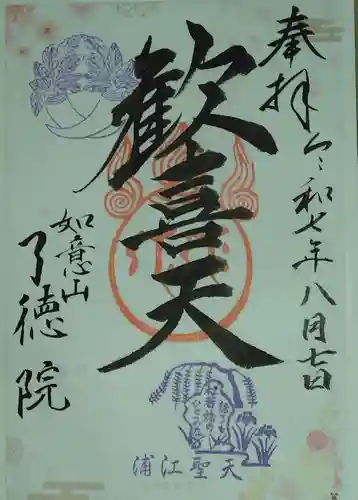 奉拝 令和七年八月七日
歓喜天
如意山
了徳院
浦江聖天